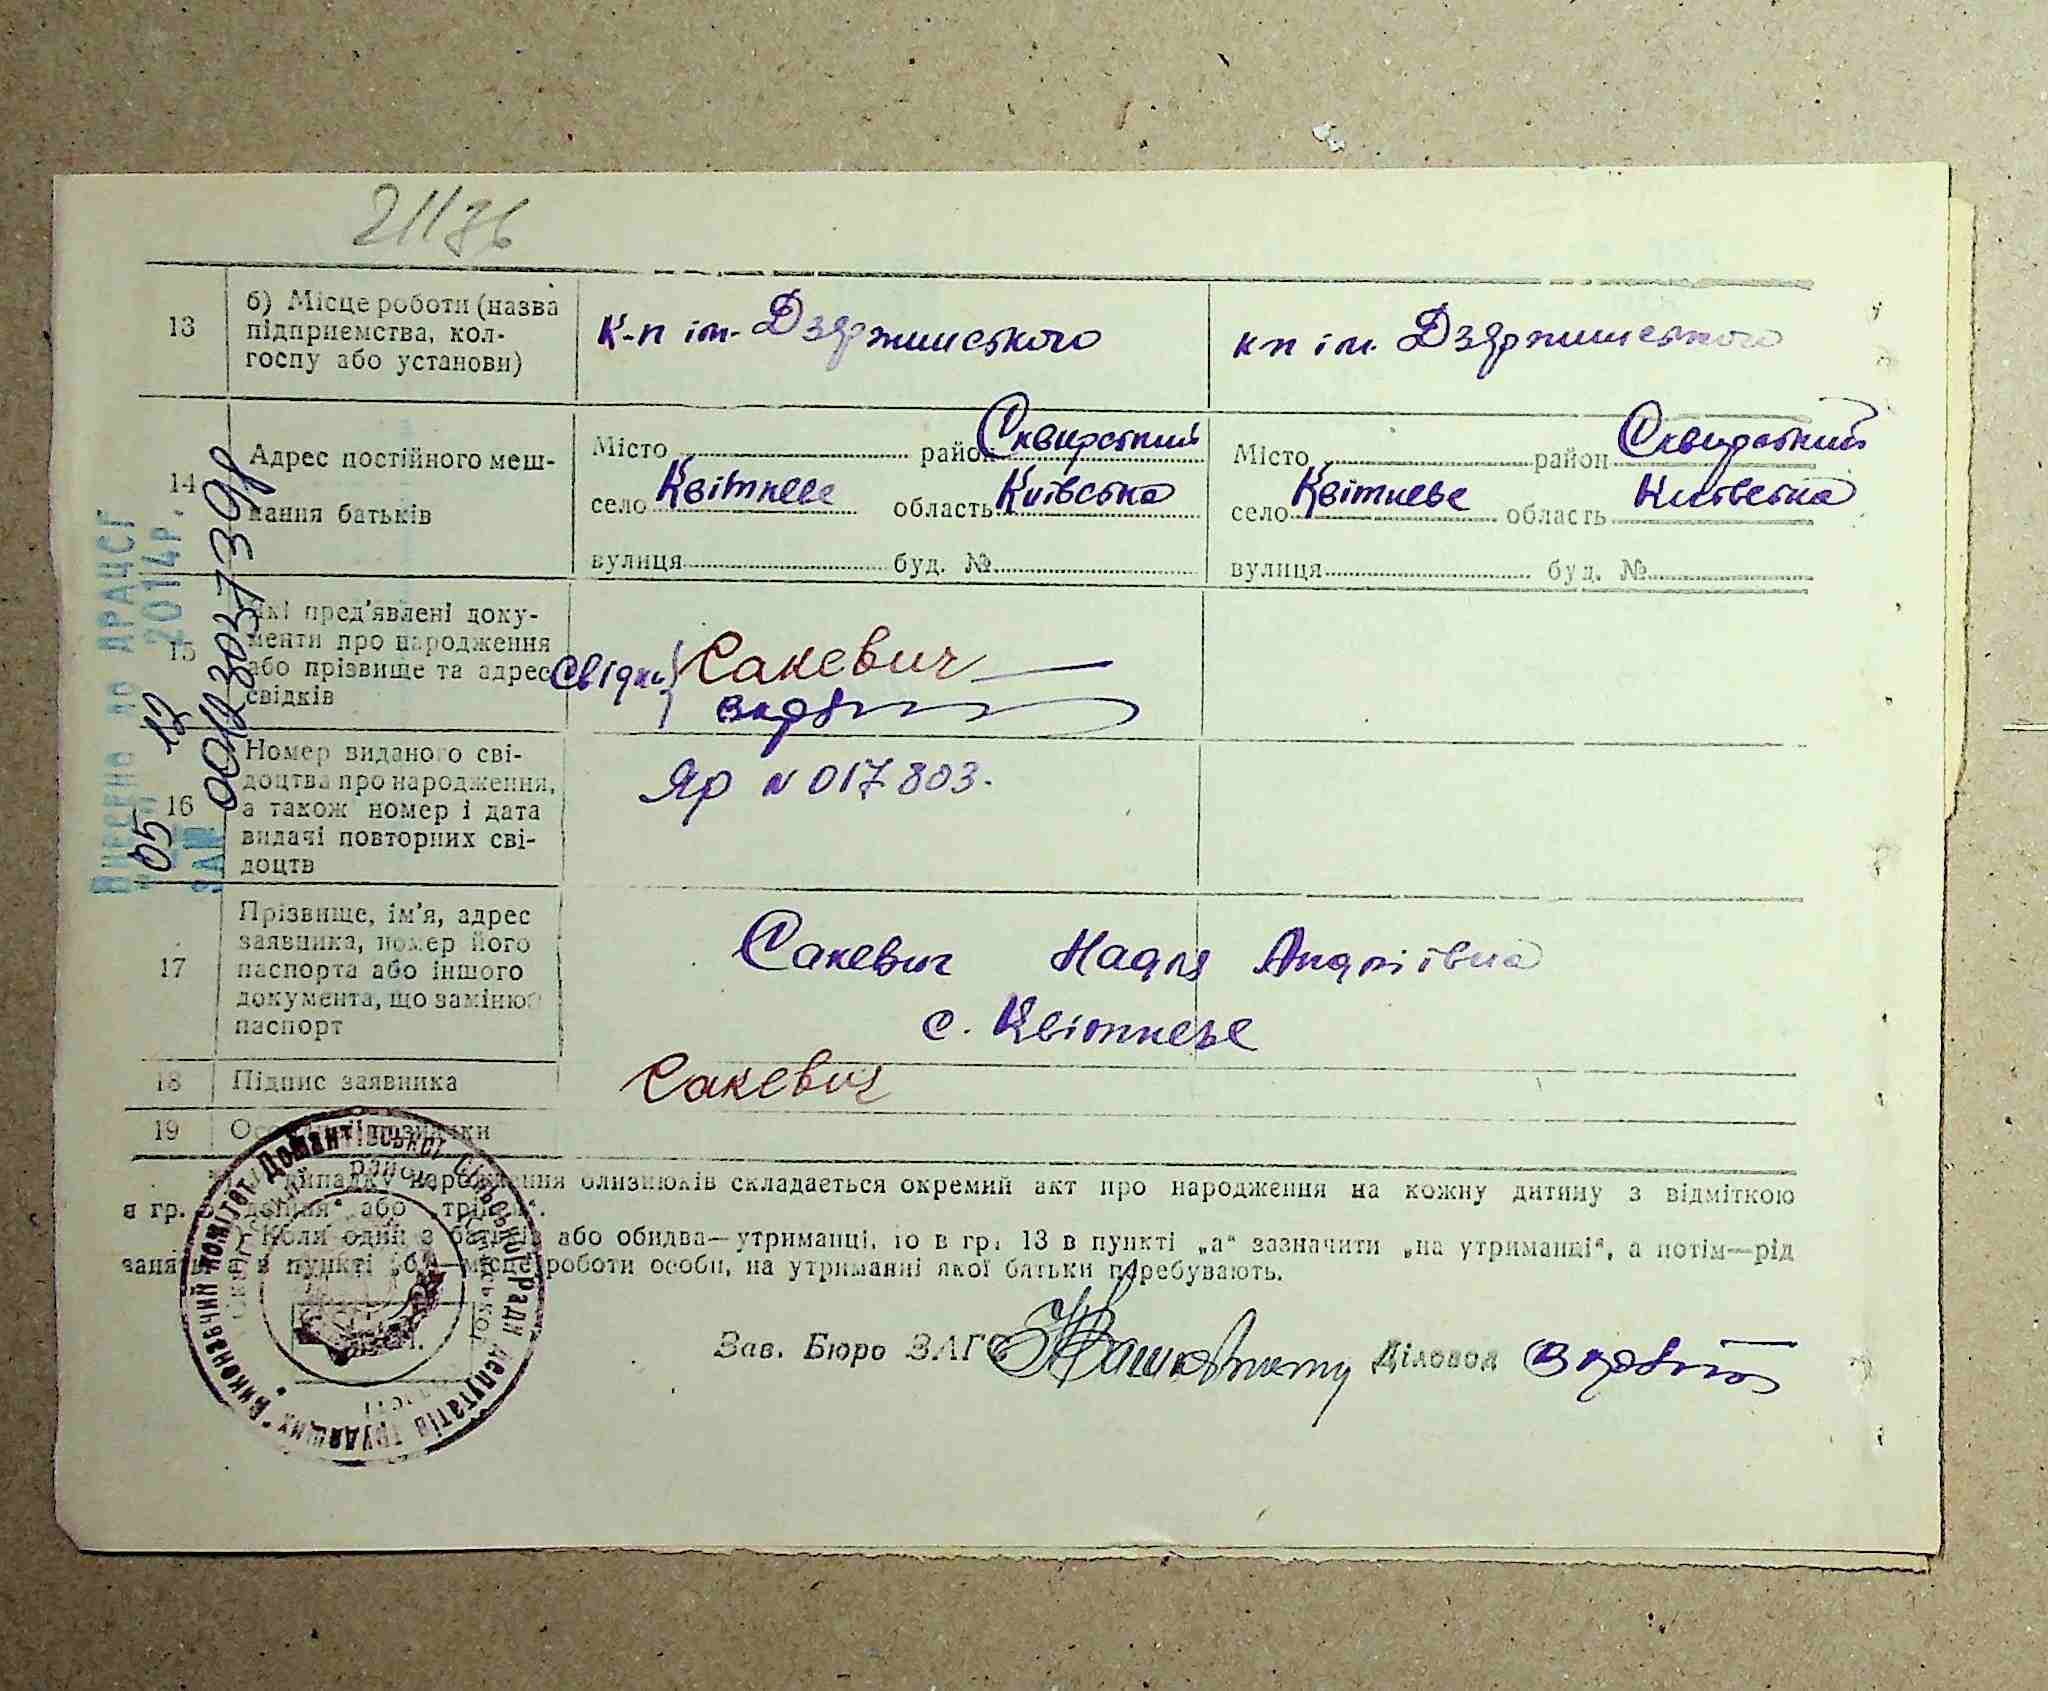 21176
13
б) Місце роботи (назва
підприємства, кол-
госпу або установи)
к-п ім. Дзержинського
кп ім. Дзержинського
14
Адрес постійного меш-
кання батьків
Місто район Сквирський
село Квітневе область Київська
вулиця буд. №
Місто район Сквирський
село Квітневе область Київська
вулиця буд. №
15
Які пред'явлені доку-
менти про народження
або прізвище та адрес
свідків
Свідки Сакевич
16
Номер виданого сві-
доцтва про народження,
а також номер і дата
видачі повторних сві-
доцтв
Яр N 017803.
17
Прізвище, ім'я, адрес
заявника, номер його
паспорта або іншого
документа, що замінює
паспорт
Сакевич Надія Андріївна
с. Квітневе
18
Підпис заявника
Сакевич
19
випадку народження близнюків складається окремий акт про народження на кожну дитину з відміткою
в гр. або
Коли один з батьків або обидва—утриманці, то в гр. 13 в пункті „а“ зазначити „на утриманці“, а потім—рід
в пункті „б“—місце роботи особи, на утриманні якої батьки перебувають.
Зав. Бюро ЗАГС Діловод
Виконавчий комітет Домантівської сільської Ради депутатів трудящих
району Київської області
до ДРАЦСГ
05 12 2014р.
ЗА№ 00123037398